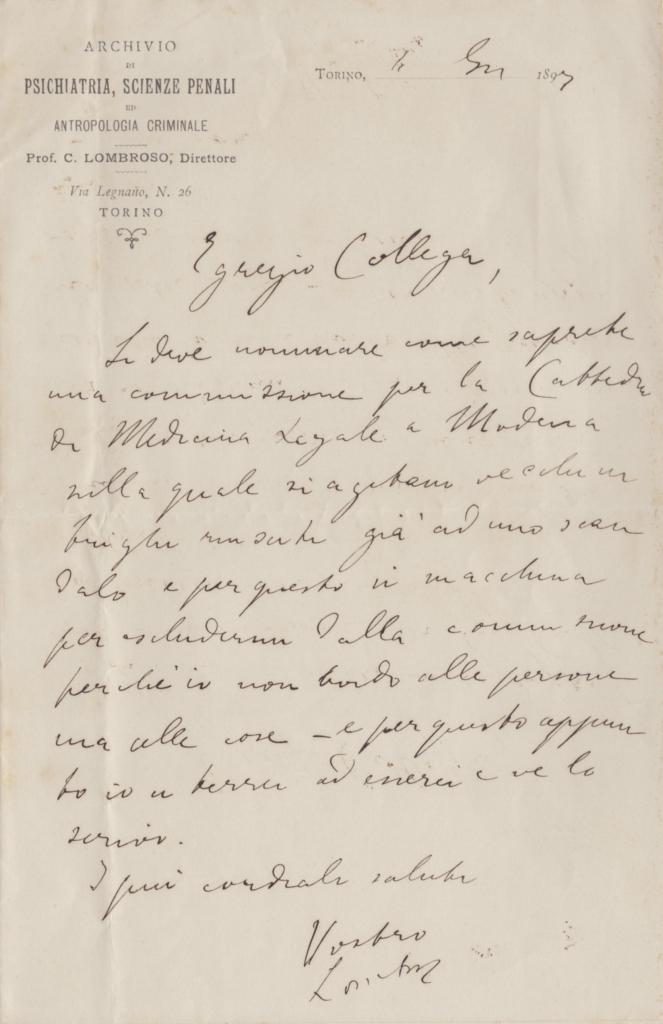 ARCHIVIO
DI
PSICHIATRIA, SCIENZE PENALI
ED
ANTROPOLOGIA CRIMINALE
Prof. C. LOMBROSO, Direttore
Via Legnano, N. 26
TORINO
TORINO, 1897
Egregio Collega,
Si deve nominare come saprete
una commissione per la Cattedra
di Medicina Legale a Modena
sulla quale si agitano vecchi in
trighi riusciti già ad uno scan
dalo e per questo si macchina
per escludermi dalla commissione
perché io non bado alle persone
ma alle cose – e per questo appun
to io ci terrei ad esserci e ve lo
scrivo.
I più cordiali saluti
Vostro
Lombroso